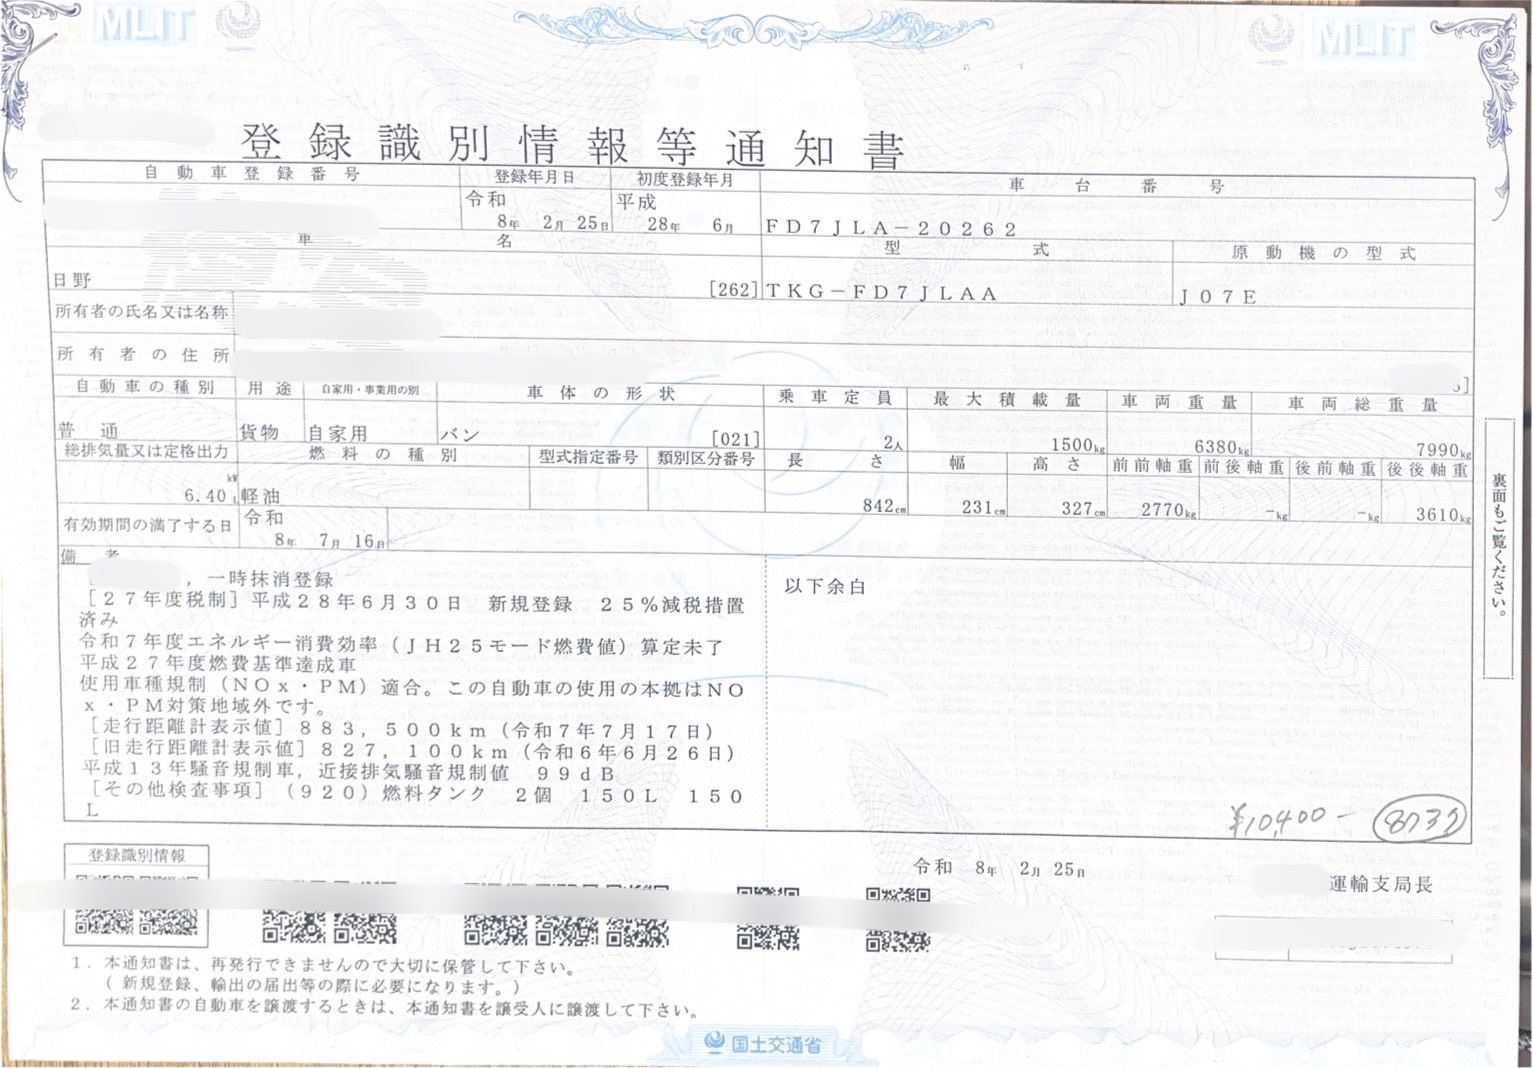 MLIT
MLIT
登録識別情報等通知書
自動車登録番号
登録年月日
初度登録年月
車台番号
令和
8年 2月 25日
平成
28年 6月
FD7JLA-20262
車名
型式
原動機の型式
日野
[262]
TKG-FD7JLAA
J07E
所有者の氏名又は名称
所有者の住所
]
自動車の種別
用途
自家用・事業用の別
車体の形状
乗車定員
最大積載量
車両重量
車両総重量
普通
貨物
自家用
バン
[021]
2人
1500kg
6380kg
7990kg
総排気量又は定格出力
燃料の種別
型式指定番号
類別区分番号
長さ
幅
高さ
前前軸重
前後軸重
後前軸重
後後軸重
kW
6.40 L
軽油
842cm
231cm
327cm
2770kg
-kg
-kg
3610kg
有効期間の満了する日
令和
8年 7月 16日
備考
,一時抹消登録
[27年度税制]平成28年6月30日 新規登録 25%減税措置
済み
令和7年度エネルギー消費効率(JH25モード燃費値)算定未了
平成27年度燃費基準達成車
使用車種規制(NOx・PM)適合。この自動車の使用の本拠はNO
x・PM対策地域外です。
[走行距離計表示値]883,500km(令和7年7月17日)
[旧走行距離計表示値]827,100km(令和6年6月26日)
平成13年騒音規制車,近接排気騒音規制値 99dB
[その他検査事項](920)燃料タンク 2個 150L 150
L
以下余白
裏面もご覧ください。
¥10,400-
8737
登録識別情報
令和 8年 2月 25日
運輸支局長
1.本通知書は、再発行できませんので大切に保管して下さい。
(新規登録、輸出の届出等の際に必要になります。)
2.本通知書の自動車を譲渡するときは、本通知書を譲受人に譲渡して下さい。
国土交通省